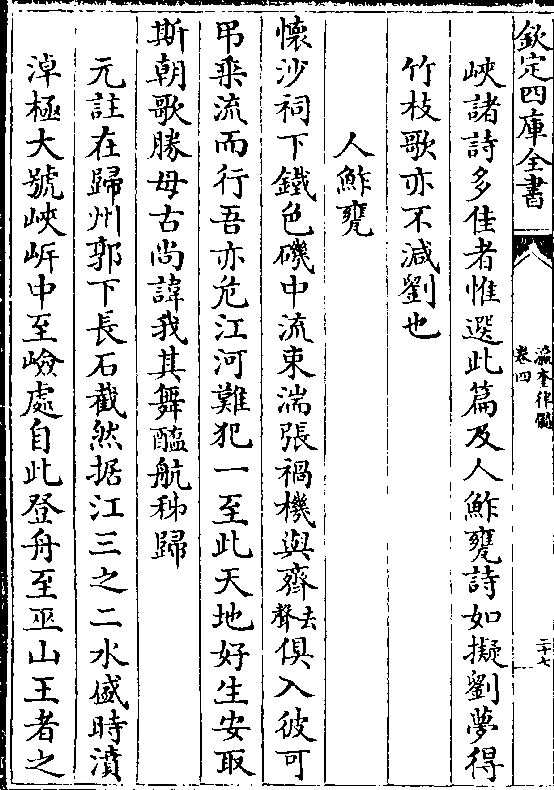 欽定四庫全書
瀛奎律髓
卷四
二十七
峽諸詩多佳者惟選此篇及人鮓甕詩如擬劉夢得
竹枝歌亦不減劉也
人鮓甕
懷沙祠下鐵色磯中流束湍張禍機與齊去聲俱入彼可
弔乘流而行吾亦危江河難犯一至此天地好生安取
斯朝歌勝母古尚諱我其舞醢航秭歸
元註在歸州郭下長石截然据江三之二水盛時濆
淖極大號峽𡶶中至嶮處自此登舟至巫山王者之